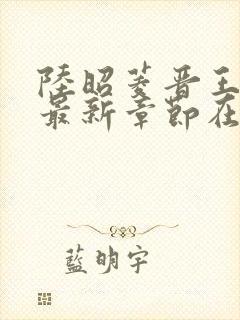 陸昭菱晋王
最新章節在
藍明宇